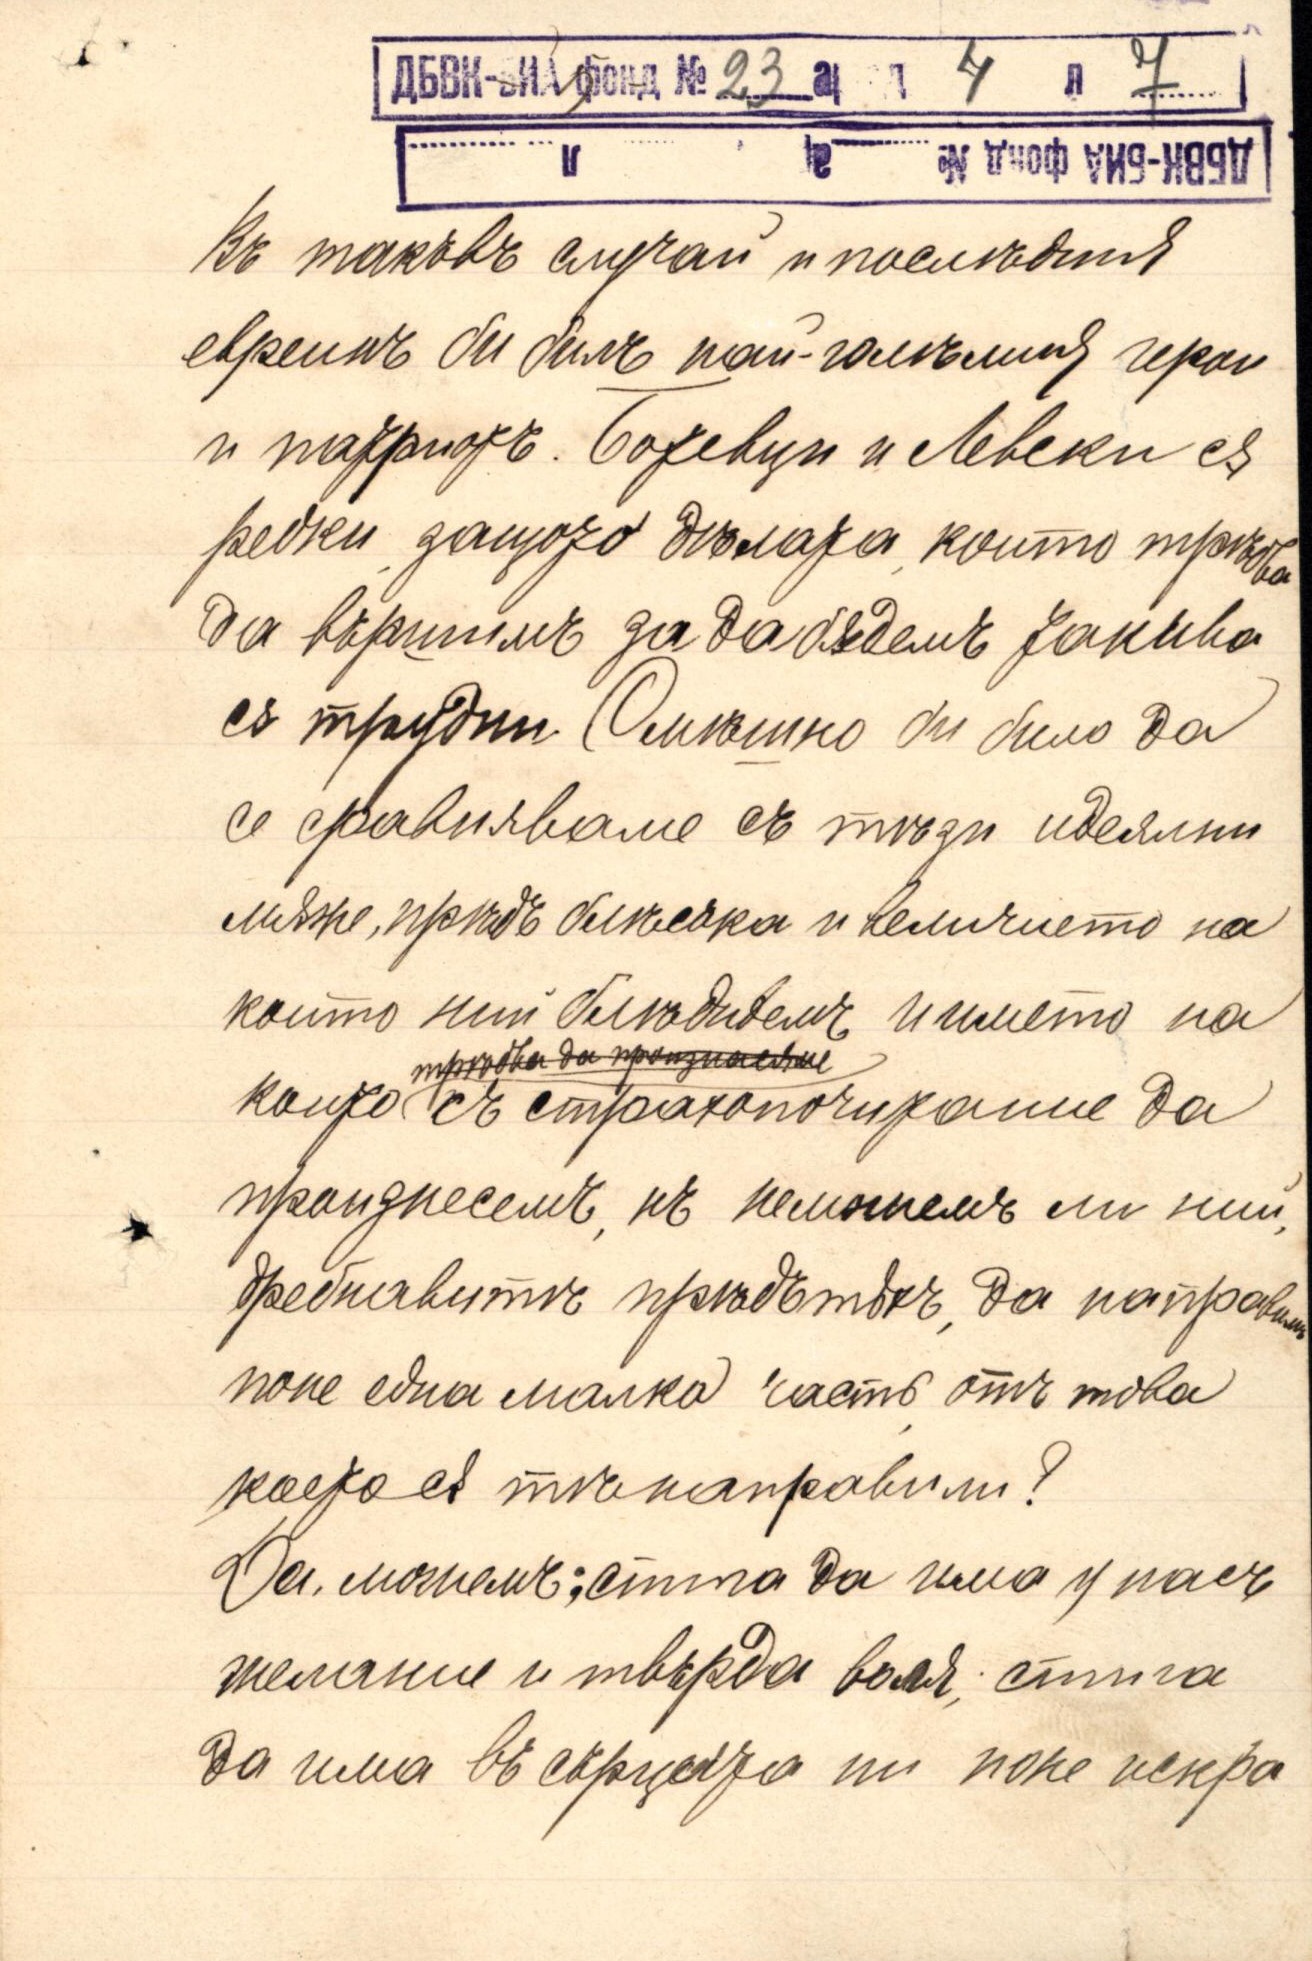 ДБВК-БИА фонд № 23 а 4 л 7
ДБВК-БИА фонд № а л
Въ такъвъ случай и послѣдния
евреинъ би билъ най-голѣмия герои
и патриотъ. Ботевци и Левски сѫ
редки, защото дѣлата, които трѣбва
да вършимъ за да бѫдемъ такива
сѫ трудни. Смѣшно би било да
се сравняваме съ тѣзи идеялни
мѫже, прѣдъ блѣсъка и величието на
които ний блѣднѣемъ и името на
трѣбва да произнасяме
които съ страхопочитание да
произнесемъ, нъ неможемъ ли ний,
дребнавитѣ прѣдъ тѣхъ, да направимъ
поне една малка часть отъ това
което сѫ тѣ направили?
Да, можемъ; стига да има у насъ
желание и твърда воля; стига
да има въ сърцата ни поне искра